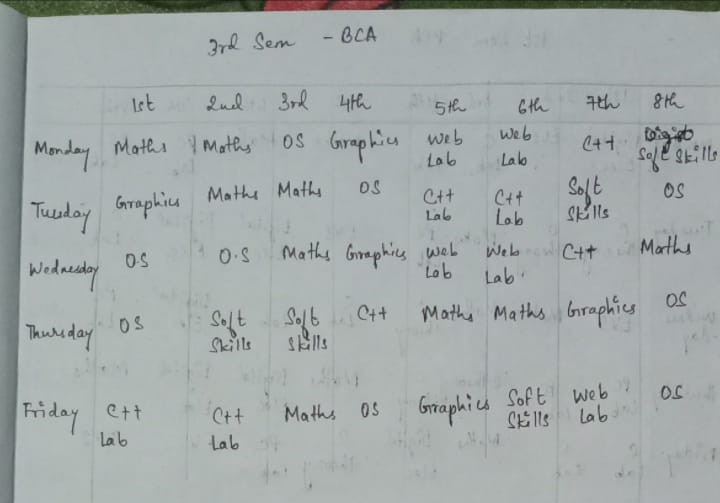 3rd Sem - BCA
1st 2nd 3rd 4th 5th 6th 7th 8th
Monday Maths Maths OS Graphics Web Lab Web Lab C++ Soft Skills
Tuesday Graphics Maths Maths OS C++ Lab C++ Lab Soft Skills OS
Wednesday OS O.S Maths Graphics Web Lab Web Lab C++ Maths
Thursday OS Soft Skills Soft Skills C++ Maths Maths Graphics OS
Friday C++ Lab C++ Lab Maths OS Graphics Soft Skills Web Lab OS